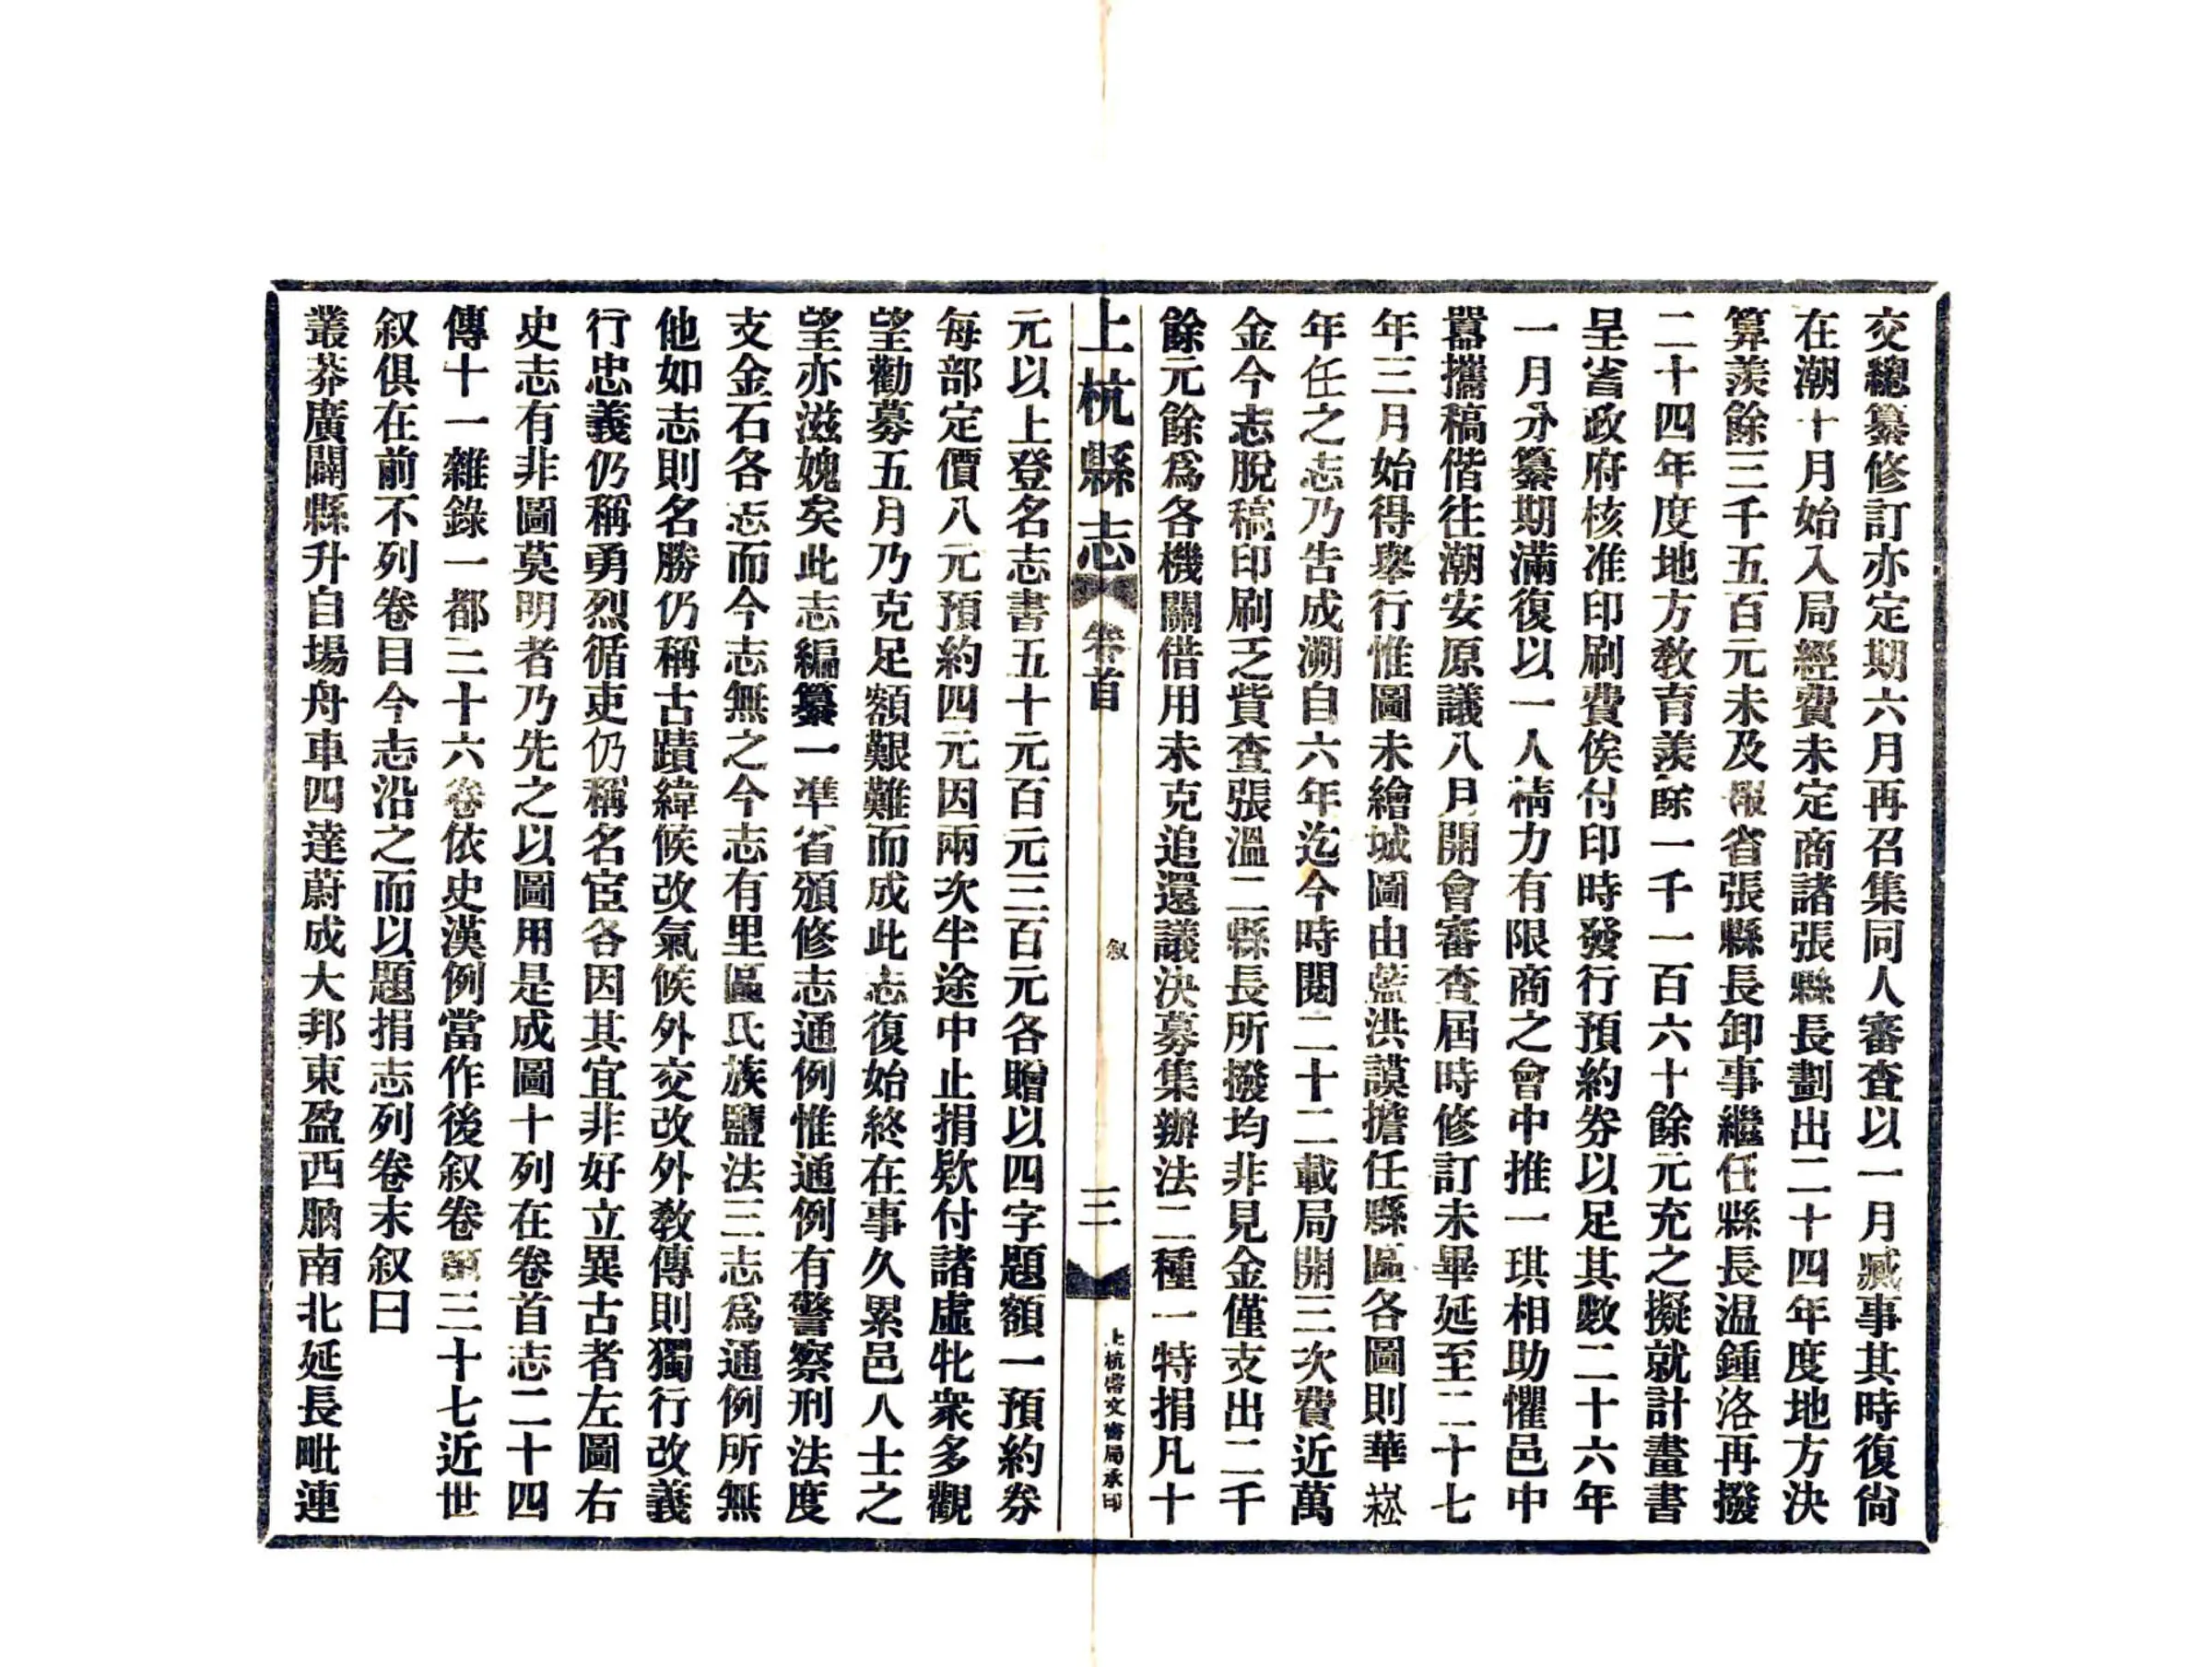 交總纂修訂亦定期六月再召集同人審查以一月蕆事其時復尙
在潮十月始入局經費未定商諸張縣長劃出二十四年度地方決
算羨餘三千五百元未及報省張縣長卸事繼任縣長温鍾洛再撥
二十四年度地方敎育羨餘一千一百六十餘元充之擬就計畫書
呈省政府核准印刷費俟付印時發行預約券以足其數二十六年
一月分纂期滿復以一人精力有限商之會中推一琪相助懼邑中
囂攜稿偕往潮安原議八月開會審查屆時修訂未畢延至二十七
年三月始得舉行惟圖未繪城圖由藍洪謨擔任縣區各圖則華崧
年任之志乃告成溯自六年迄今時閱二十二載局開三次費近萬
金今志脫稿印刷乏貲查張溫二縣長所撥均非見金僅支出二千
餘元餘爲各機關借用未克追還議決募集辦法二種一特捐凡十
上杭縣志 卷首 叙 三 上杭啓文書局承印
元以上登名志書五十元百元三百元各贈以四字題額一預約券
每部定價八元預約四元因兩次半途中止捐欵付諸虛牝衆多觀
望勸募五月乃克足額艱難而成此志復始終在事久累邑人士之
望亦滋媿矣此志編纂一準省頒修志通例惟通例有警察刑法度
支金石各志而今志無之今志有里區氏族鹽法三志爲通例所無
他如志則名勝仍稱古蹟緯候改氣候外交改外敎傳則獨行改義
行忠義仍稱勇烈循吏仍稱名宦各因其宜非好立異古者左圖右
史志有非圖莫明者乃先之以圖用是成圖十列在卷首志二十四
傳十一雜錄一都三十六卷依史漢例當作後叙卷第三十七近世
叙俱在前不列卷目今志沿之而以題捐志列卷末叙曰
叢莽廣闢縣升自場舟車四達蔚成大邦東盈西朒南北延長毗連